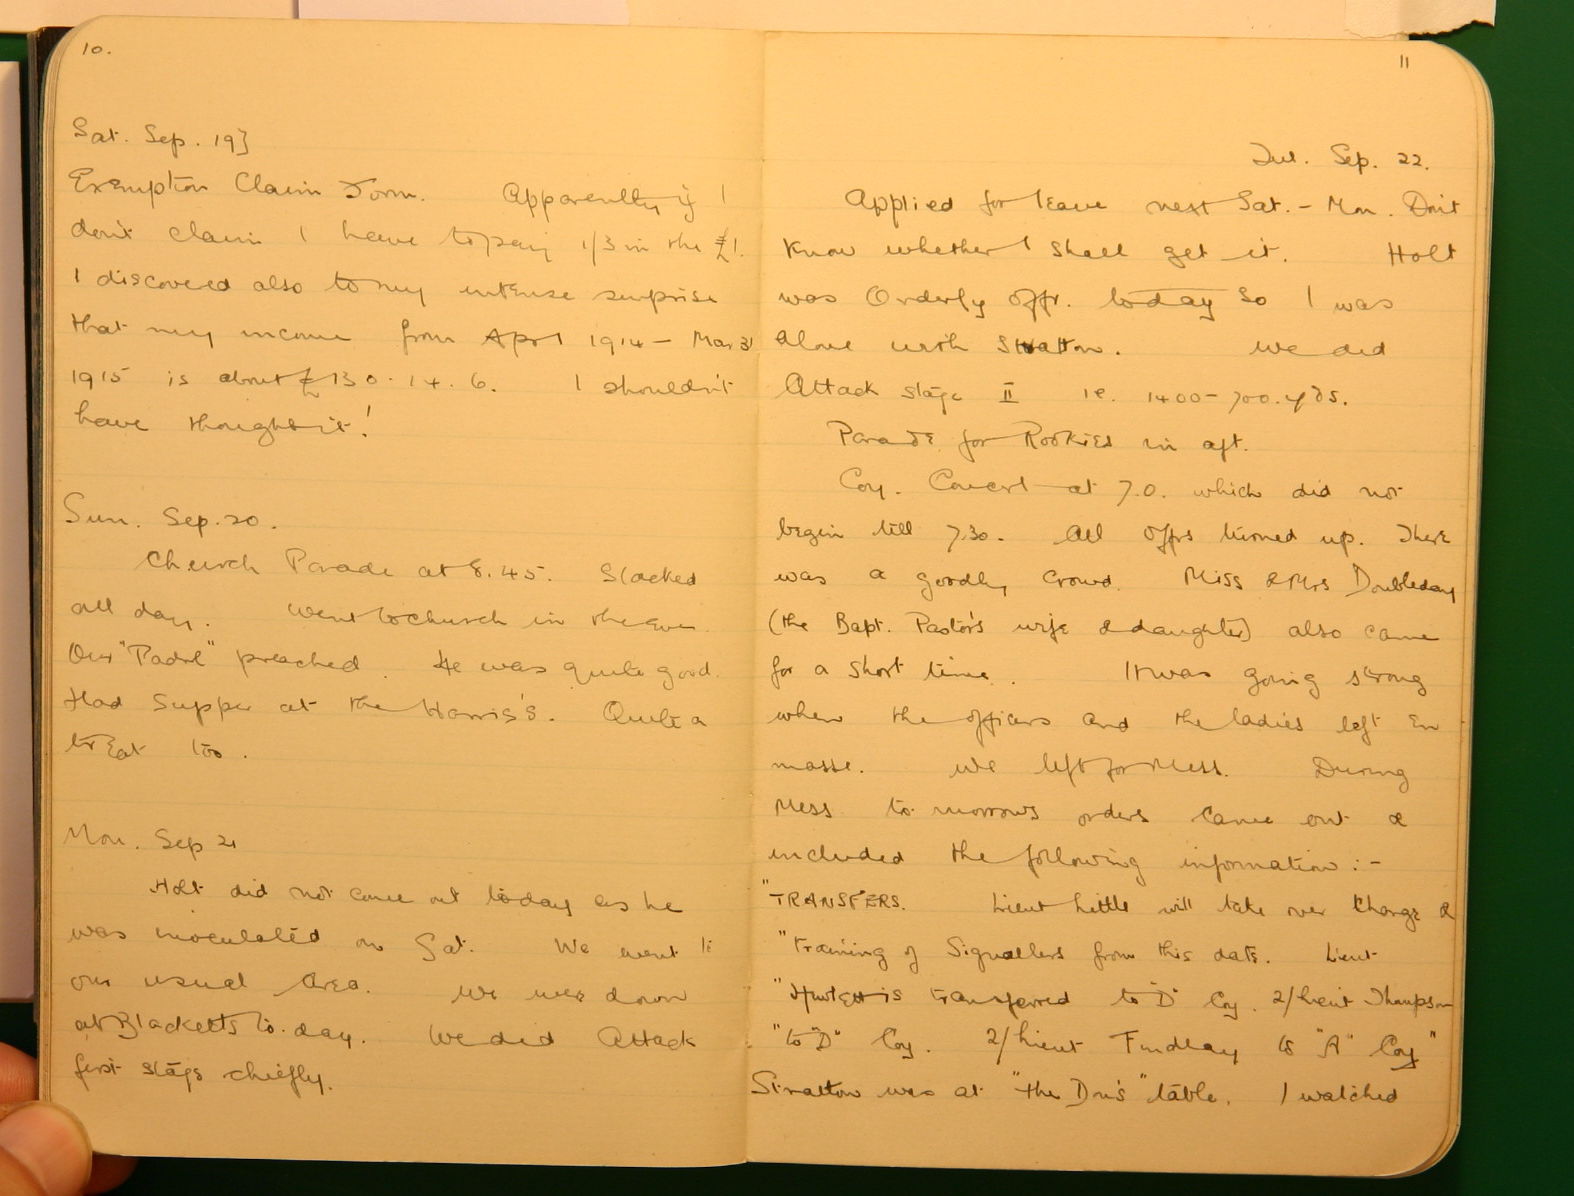 10.
Sat. Sep. 19]
Exemption Claim Form. Apparently if I
don't claim I have to pay 1/3 in the £1.
I discovered also to my intense surprise
that my income from Apl 1914 – Mar 31
1915 is about £130.14.6. I shouldn't
have thought it!
Sun. Sep. 20.
Church Parade at 8.45. Slacked
all day. Went to church in the even
Our "Padre" preached. He was quite good.
Had Supper at the Harris's. Quite a
treat too.
Mon. Sep 21
Holt did not come out today as he
was inoculated on Sat. We went to
our usual Area. We were down
at Blacketts to-day. We did Attack
first stage chiefly.
11
Tue. Sep. 22.
Applied for leave next Sat. – Mon. Don't
know whether I shall get it. Holt
was Orderly Offr. today so I was
alone with Stratton. We did
Attack stage II ie. 1400–700 yds.
Parade for Rookies in aft.
Coy. Concert at 7.0. which did not
begin till 7.30. All Offrs turned up. There
was a goodly crowd. Miss & Mrs Doubleday
(the Bapt. Pastor's wife & daughter) also came
for a short time. It was going strong
when the officers and the ladies left en
masse. We left for Mess. During
Mess to-morrows orders came out &
included the following information :-
"TRANSFERS. Lieut Little will take over Charge &
"training of Signallers from this date. Lieut
"Hewlett is transferred to "D" Coy. 2/Lieut Thompson
"to "D" Coy. 2/Lieut Findlay to "A" Coy"
Stratton was at "the Dru's" table. I watched